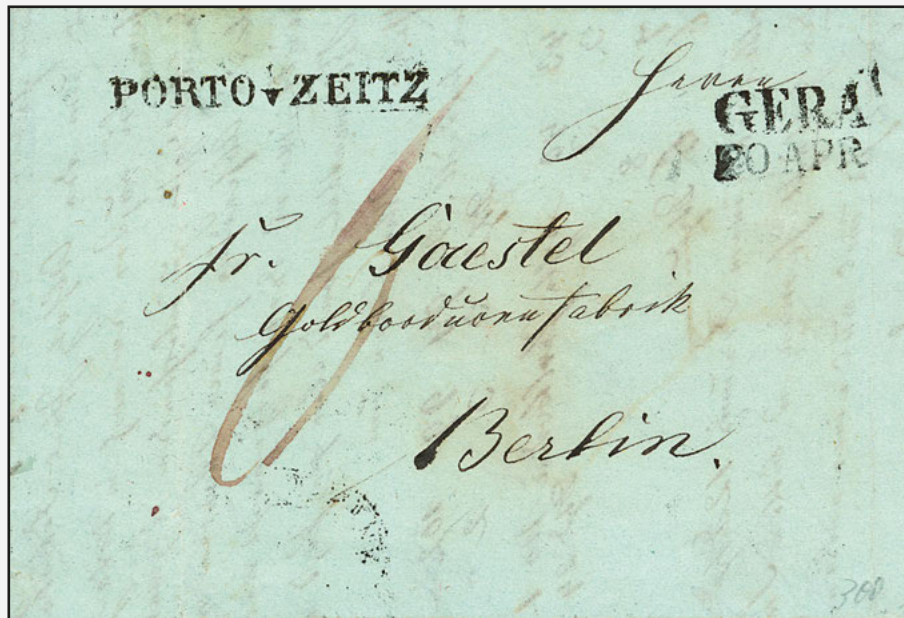 PORTO▾ZEITZ
Herrn
GERA
20 APR
Fr. Gaestel
Goldborduren fabrik
Berlin.
300